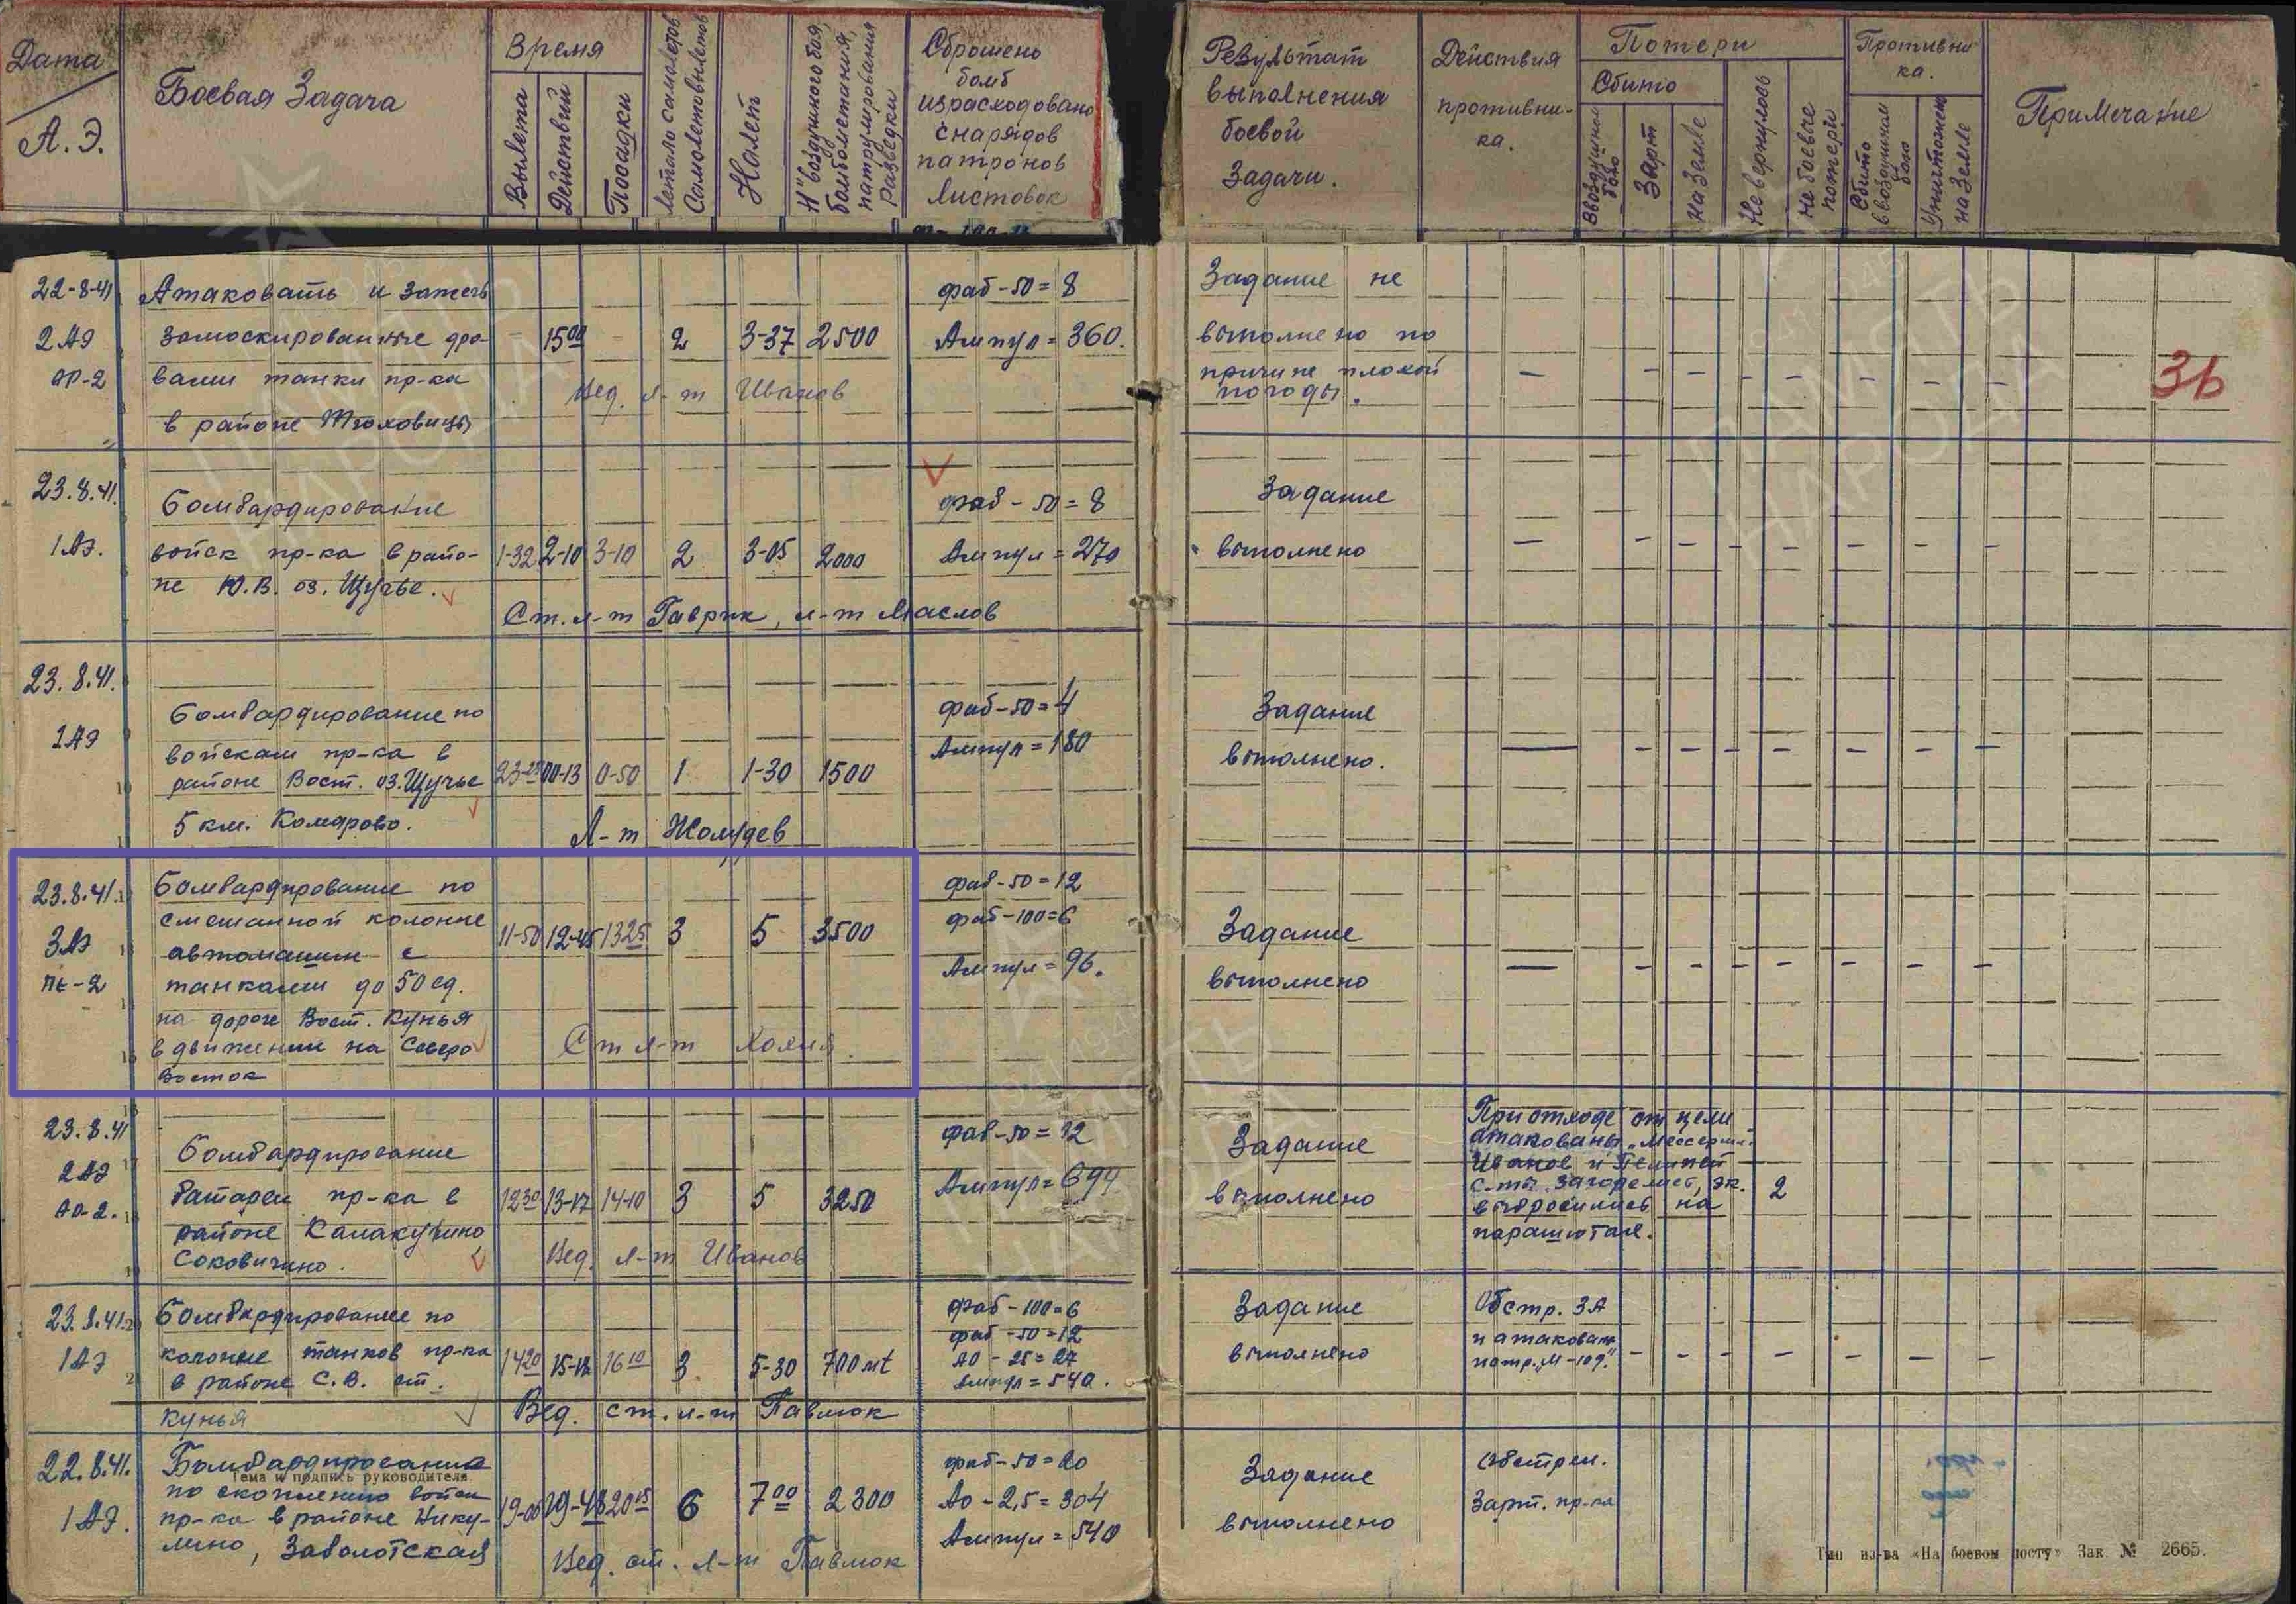 Дата
А.Э.
Боевая Задача
Время
Вылета
Действий
Посадки
Летало самолетов
Самолетовылетов
Налет
Н воздушного боя,
бомбометания,
патрулирования
разведки
Сброшено
бомб
израсходовано
снарядов
патронов
листовок
Результат
выполнения
боевой
Задачи.
Действия
противни-
ка.
Потери
Сбито
Ввоздушном
бою
Зарт
на земле
Не вернулось
не боевые
потери
Противни
ка.
Сбито
ввоздушном
бою
Уничтожен
на земле
Примечание
22-8-41
2 АЭ
АР-2
Атаковать и зажечь
замоскированные дро-
вами танки пр-ка
в районе
15 00 2 3-37 2500
Вед. л-т Иванов
фаб-50=8
Ампул=360.
Задание не
выполнено по
причине плохой
погоды.
36
23.8.41.
1 АЭ.
Бомбардирование
войск пр-ка в райо-
не Ю.В. оз. Щучье.
1-32 2-10 3-10 2 3-05 2000
Ст. л-т Гаврик, л-т Маслов
фаб-50=8
Ампул=270
Задание
выполнено
23.8.41.
1 АЭ
Бомбардирование по
войскам пр-ка в
районе Вост. оз. Щучье
5 км. Комарово.
23-25 00-13 0-50 1 1-30 1500
Л-т Жолудев
фаб-50=4
Ампул=180
Задание
выполнено.
23.8.41.
3 АЭ
ПЕ-2
Бомбардирование по
смешанной колонне
автомашин с
танками до 50 ед.
на дороге Вост. Кунья
в движении на Северо
Восток
11-50 12-45 13 25 3 5 3500
Ст л-т
фаб-50=12
фаб-100=6
Ампул=96.
Задание
выполнено
23.8.41
2 АЭ
АР-2.
Бомбардирование
батареи пр-ка в
районе
Соковичино.
12 30 13-17 14-10 3 5 3250
Вед. л-т Иванов
фаб-50=12
Ампул=694
Задание
выполнено
При отходе от цели
атакованы „Мессершм.“
Иванов и
с-ты загорелись, эк.
выбросились на
парашютах.
2
23.8.41.
1 АЭ
Бомбардирование по
колонне танков пр-ка
в районе С.В. ст.
Кунья
14 20 15-12 16 10 3 5-30 700 mt
Вед. ст. л-т Павлюк
фаб-100=6
фаб-50=12
АО-25=27
Ампул=540.
Задание
выполнено
Обстр. ЗА
и атакован
патр. „М-109.“
22.8.41.
1 АЭ.
Бомбардирование
Тема и подпись руководителя
по скоплению войск
пр-ка в районе Нику-
лино, Заболотская
19-00 19-48 20 15 6 7 00 2300
Вед. ст. л-т Павлюк
фаб-50=20
АО-2,5=304
Ампул=540
Задание
выполнено
Обстрел.
Зарт. пр-ка
Тип из-ва «На боевом посту» Зак № 2665.